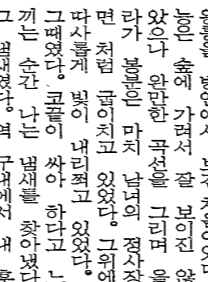 능은 숲에 가려서 잘 보이진 않
았으나 완만한 곡선을 그리며 올
라가 봉분은 마치 남녀의 정사장
면처럼 굽이치고 있었다. 그위에
따사롭게 빛이 내리쬐고 있었다.
그때였다. 코끝이 싸아 하다고 느
끼는 순간 나는 냄새를 찾아냈다
그 냄새였다. 역 구내에서 내